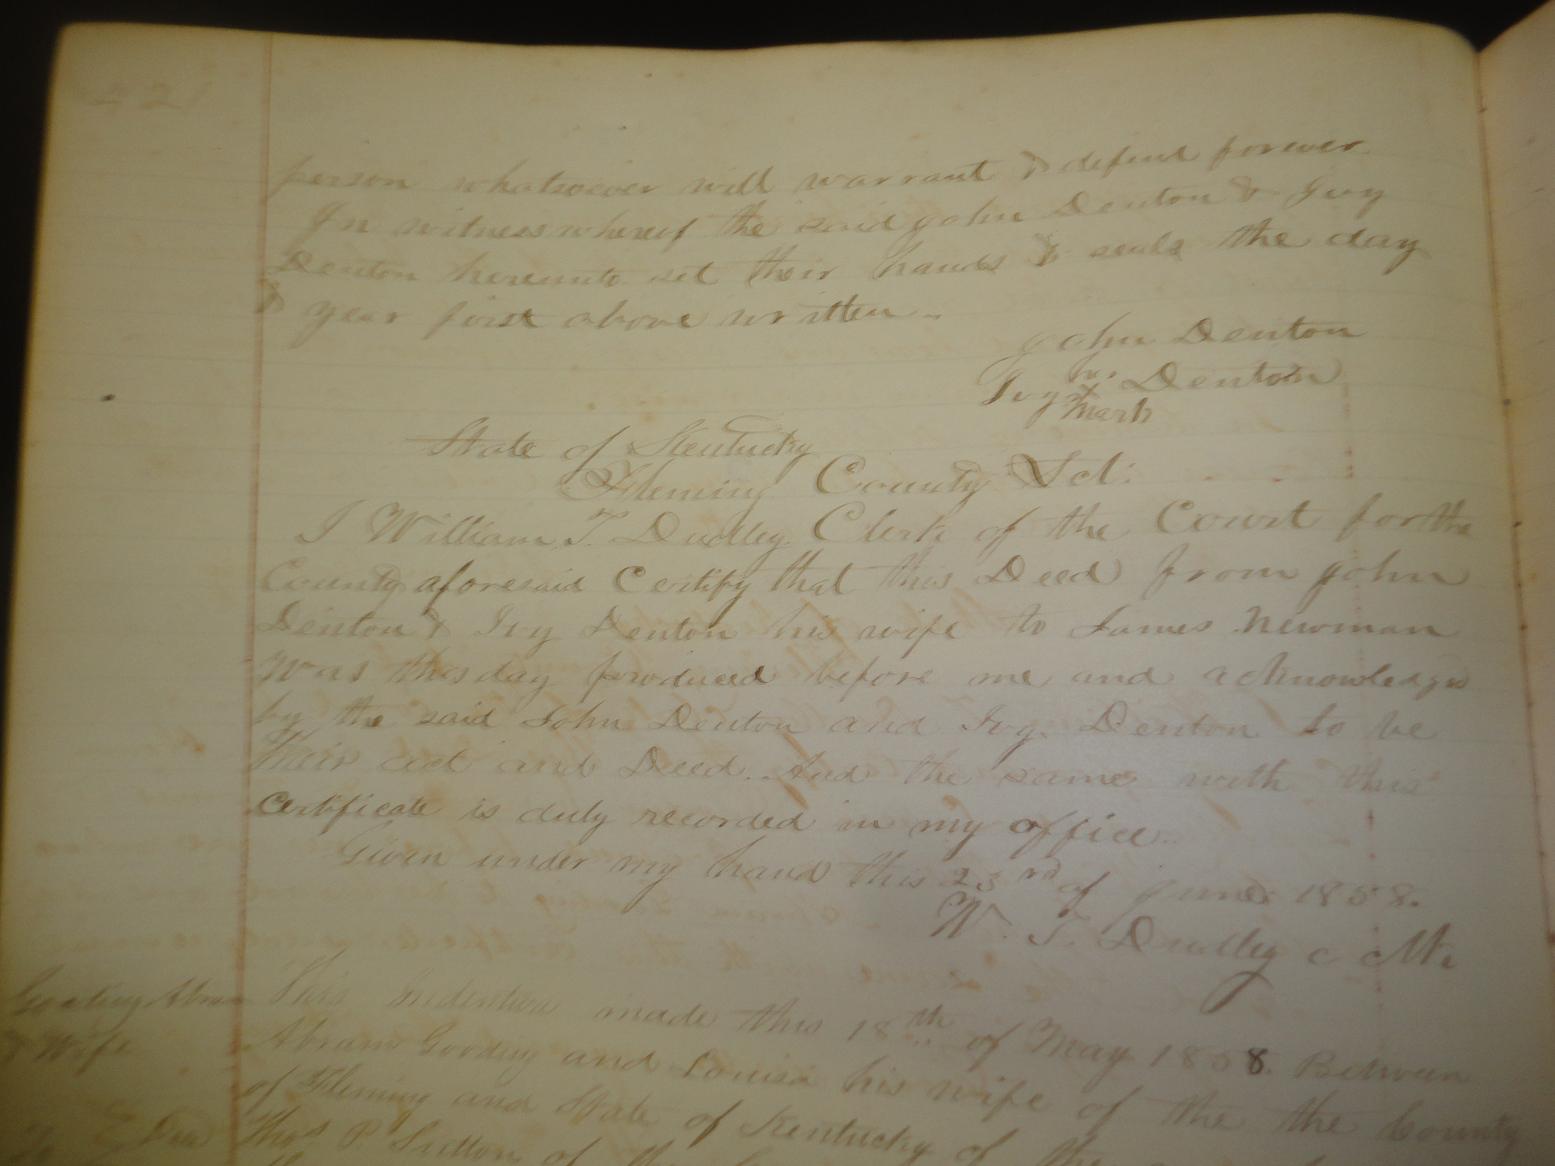 221
person whatsoever will warrant & defend forever
In witness whereof the said John Denton & Ivy
Denton hereunto set their hands & seals the day
& year first above written.
John Denton
Ivy her x mark Denton
State of Kentucky
Fleming County Sct.
I William T. Dudley Clerk of the Court for the
County aforesaid Certify that this Deed from John
Denton & Ivy Denton his wife to James Newman
Was this day produced before me and acknowledged
by the said John Denton and Ivy Denton to be
their act and Deed. And the same with this
certificate is duly recorded in my office.
Given under my hand this 23rd of June 1858.
W. T. Dudley
Gooding Abram
& Wife
This Indenture made this 18th of May 1858 Between
Abram Gooding and Louisa his wife of the the County
of Fleming and State of Kentucky of the
Deed
Thos P Sutton of the